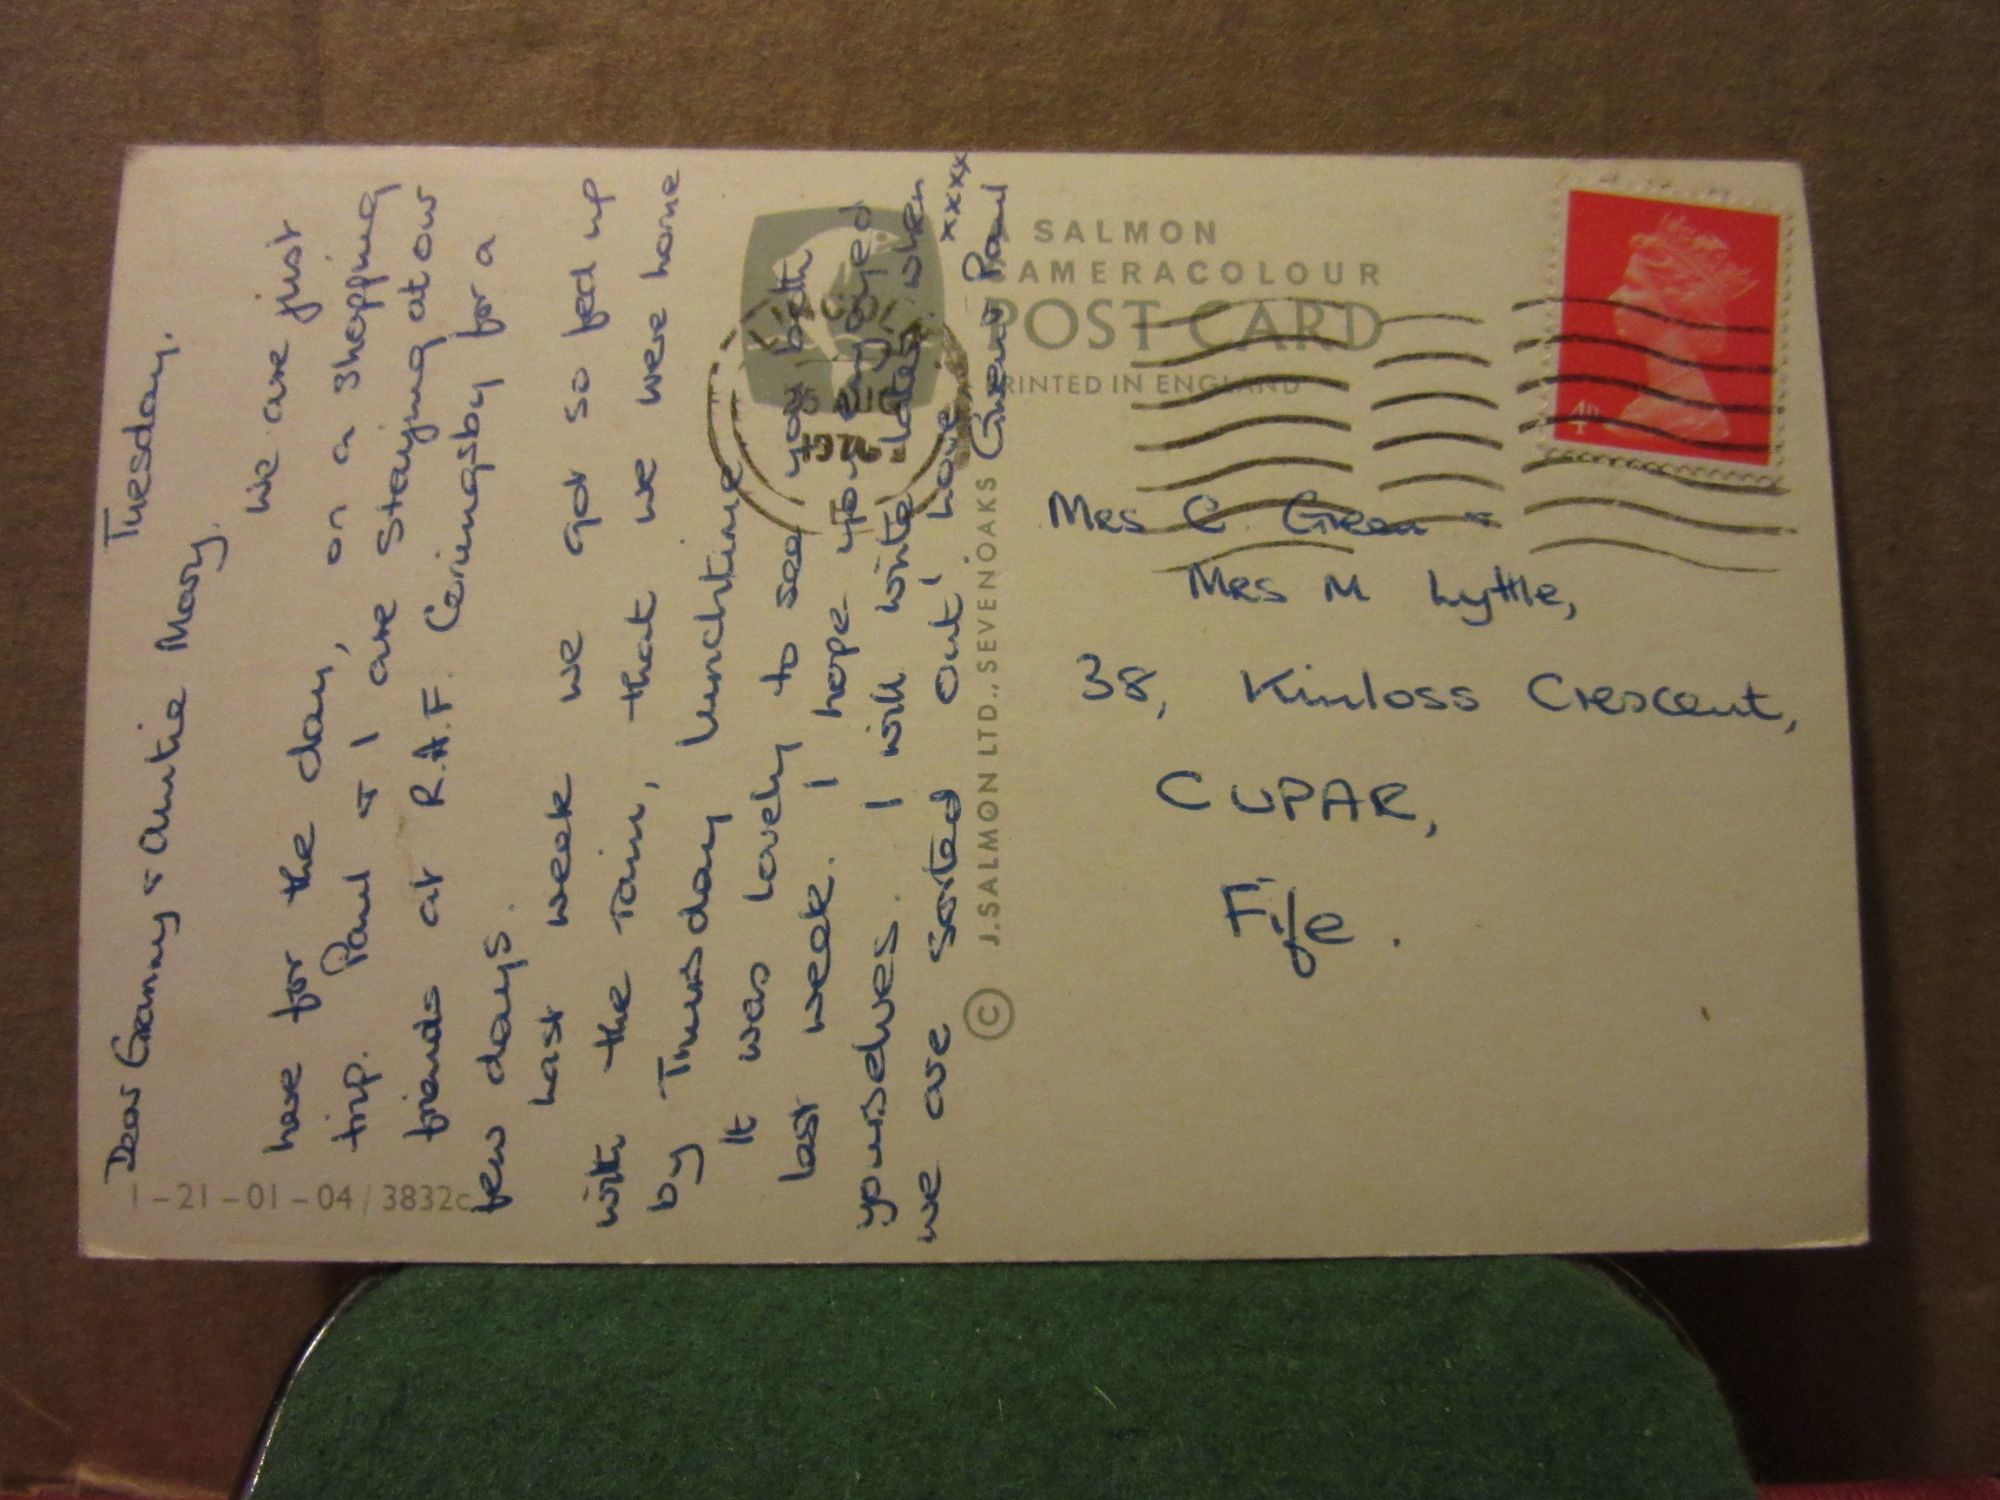 Tuesday.
Dear Granny & Auntie Mary.
We are just
here for the day, on a shopping
trip. Paul & I are staying at our
friends at R.A.F. Coningsby for a
few days.
Last week we got so fed up
with the rain, that we were home
by Thursday lunchtime
It was lovely to see you both
last week. I hope you enjoyed
yourselves. I will write later when
we are 'sorted out' love xxxx
Gwen & Paul
1-21-01-04/3832c
© J.SALMON LTD., SEVENOAKS
A SALMON
CAMERACOLOUR
POST CARD
PRINTED IN ENGLAND
LINCOLN
25 AUG
4P
Mrs C. Green &
Mrs M Lyttle,
38, Kinloss Crescent,
CUPAR,
Fife.